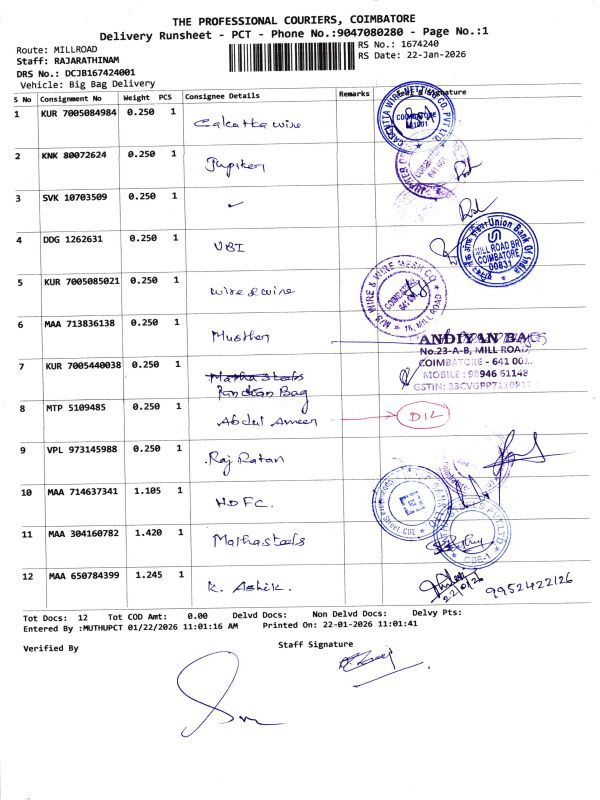 THE PROFESSIONAL COURIERS, COIMBATORE
Delivery Runsheet - PCT - Phone No.:9047080280 - Page No.:1
Route: MILLROAD
RS No.: 1674240
Staff: RAJARATHINAM
RS Date: 22-Jan-2026
DRS No.: DCJB167424001
Vehicle: Big Bag Delivery
S No Consignment No Weight PCS Consignee Details Remarks Signature
1 KUR 7005084984 0.250 1 Calcatta wire
COIMBATORE
2 KNK 80072624 0.250 1 Jupiter
641 001
3 SVK 10703509 0.250 1 ✓
4 DDG 1262631 0.250 1 UBI
Union Bank Of India
MILL ROAD BR
COIMBATORE
00831
5 KUR 7005085021 0.250 1 wire & wire
M/S WIRE & WIRE MESH CO.
15, MILL ROAD
6 MAA 713836138 0.250 1 Musthen
ANDIYAN BAGS
No.23-A-B, MILL ROAD
COIMBATORE - 641 001.
MOBILE : 98946 61148
7 KUR 7005440038 0.250 1 Matha Steels
Pandian Bag
8 MTP 5109485 0.250 1 Abdul Ameer DIL
9 VPL 973145988 0.250 1 Raj Ratan
10 MAA 714637341 1.105 1 HDFC.
11 MAA 304160782 1.420 1 Mathasteels
CBE-1
12 MAA 650784399 1.245 1 K. Ashik.
9952422126
Tot Docs: 12 Tot COD Amt: 0.00 Delvd Docs: Non Delvd Docs: Delvy Pts:
Entered By :MUTHUPCT 01/22/2026 11:01:16 AM Printed On: 22-01-2026 11:01:41
Verified By Staff Signature